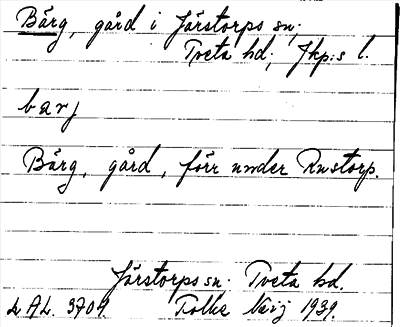 Bärg, gård i Järstorps sn;
Tveta hd; Jkp:s l.
barj
Bärg, gård, förr under Rustorp.
Järstorps sn. Tveta hd.
AL. 3709. Folke 1939.